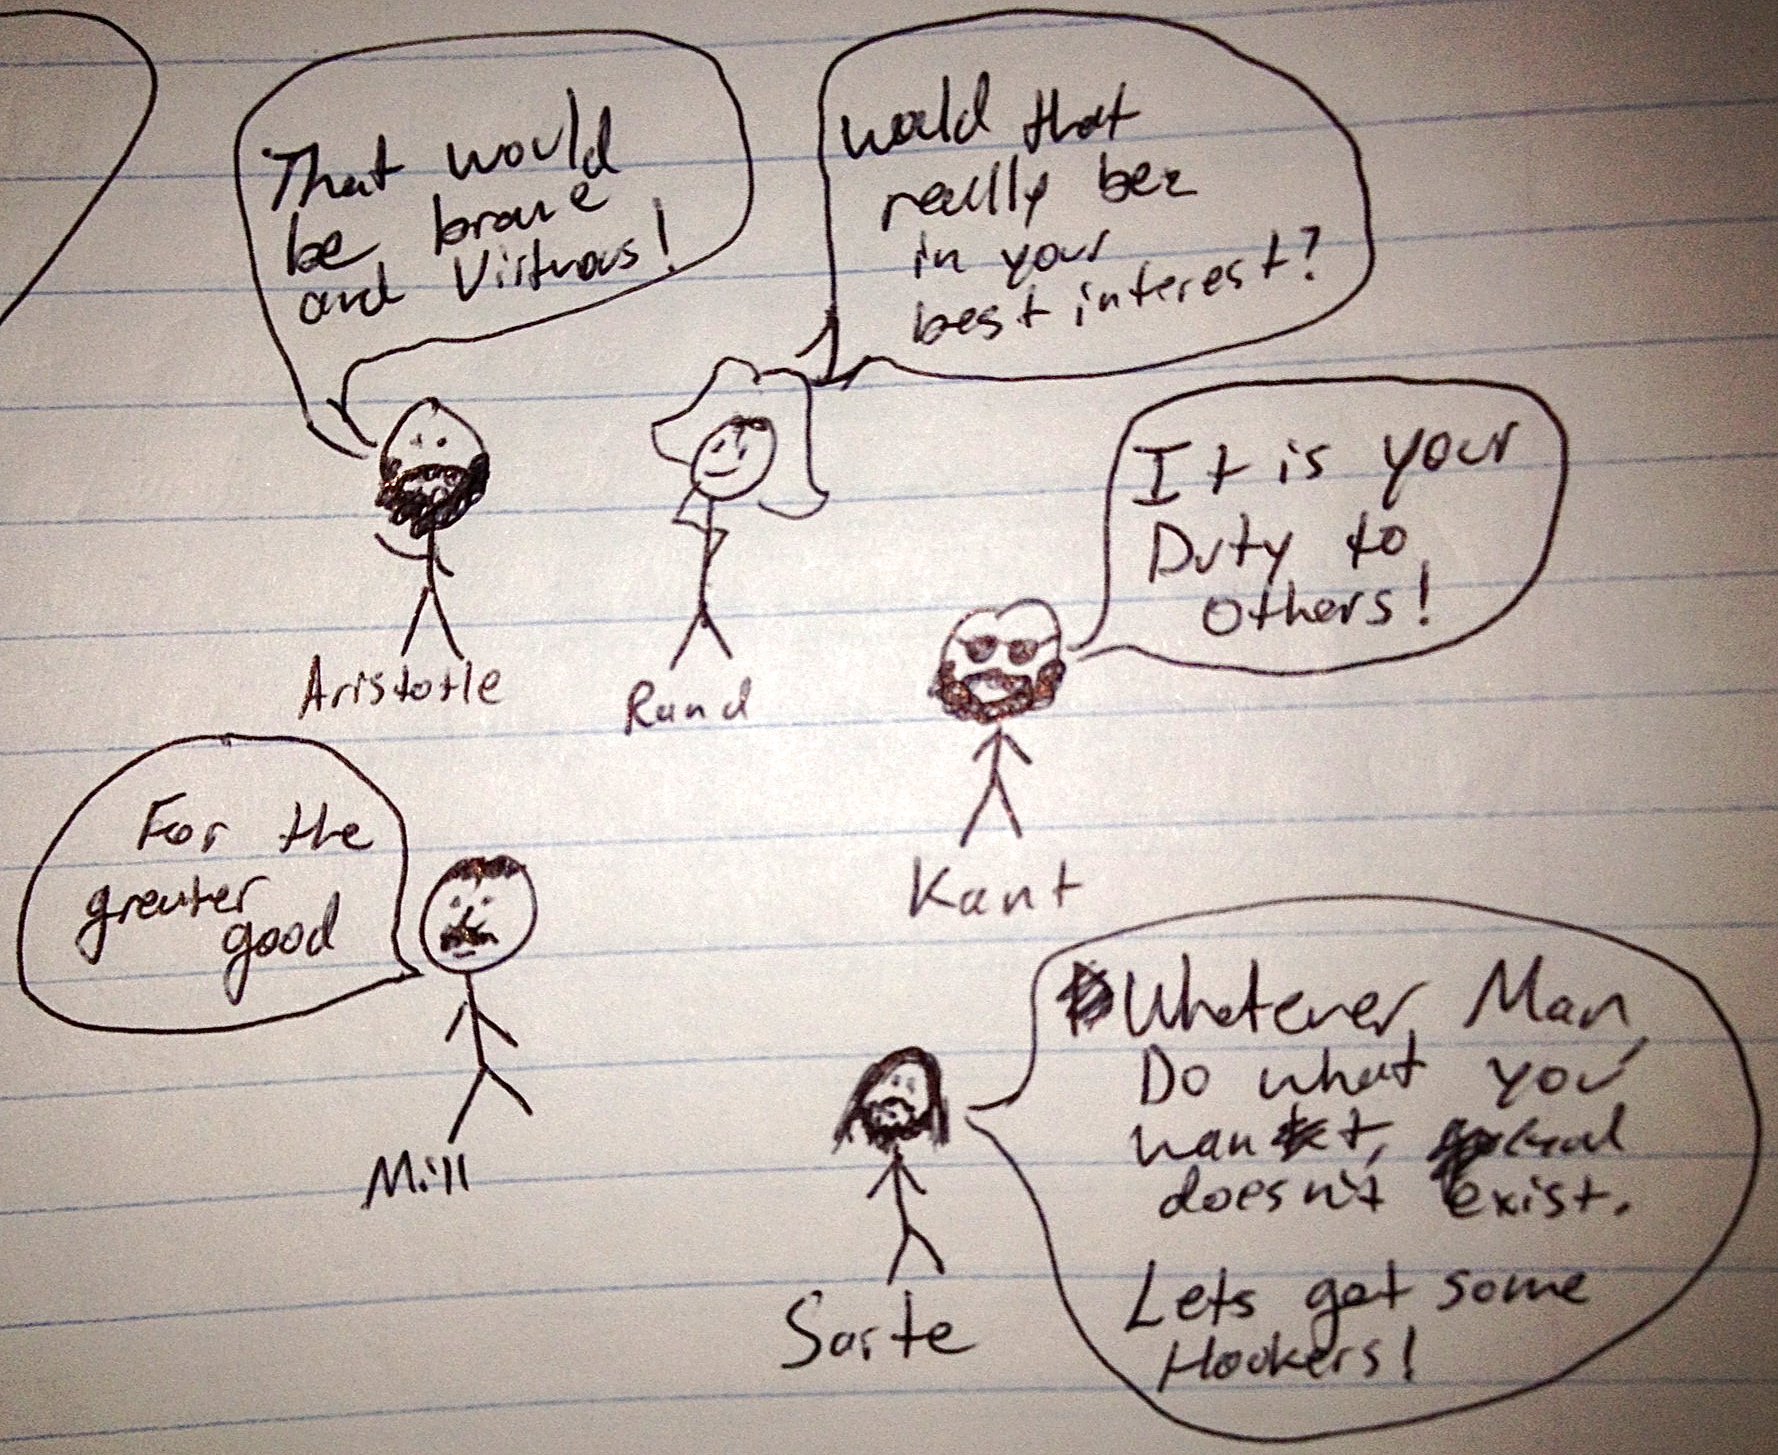 That would
be brave
and Virtuous!
would that
really be
in your
best interest?
Aristotle
Rand
It is your
Duty to
others!
Kant
For the
greater
good
Mill
Whatever Man,
Do what you
want,
doesn't exist.
Lets get some
Hookers!
Sarte